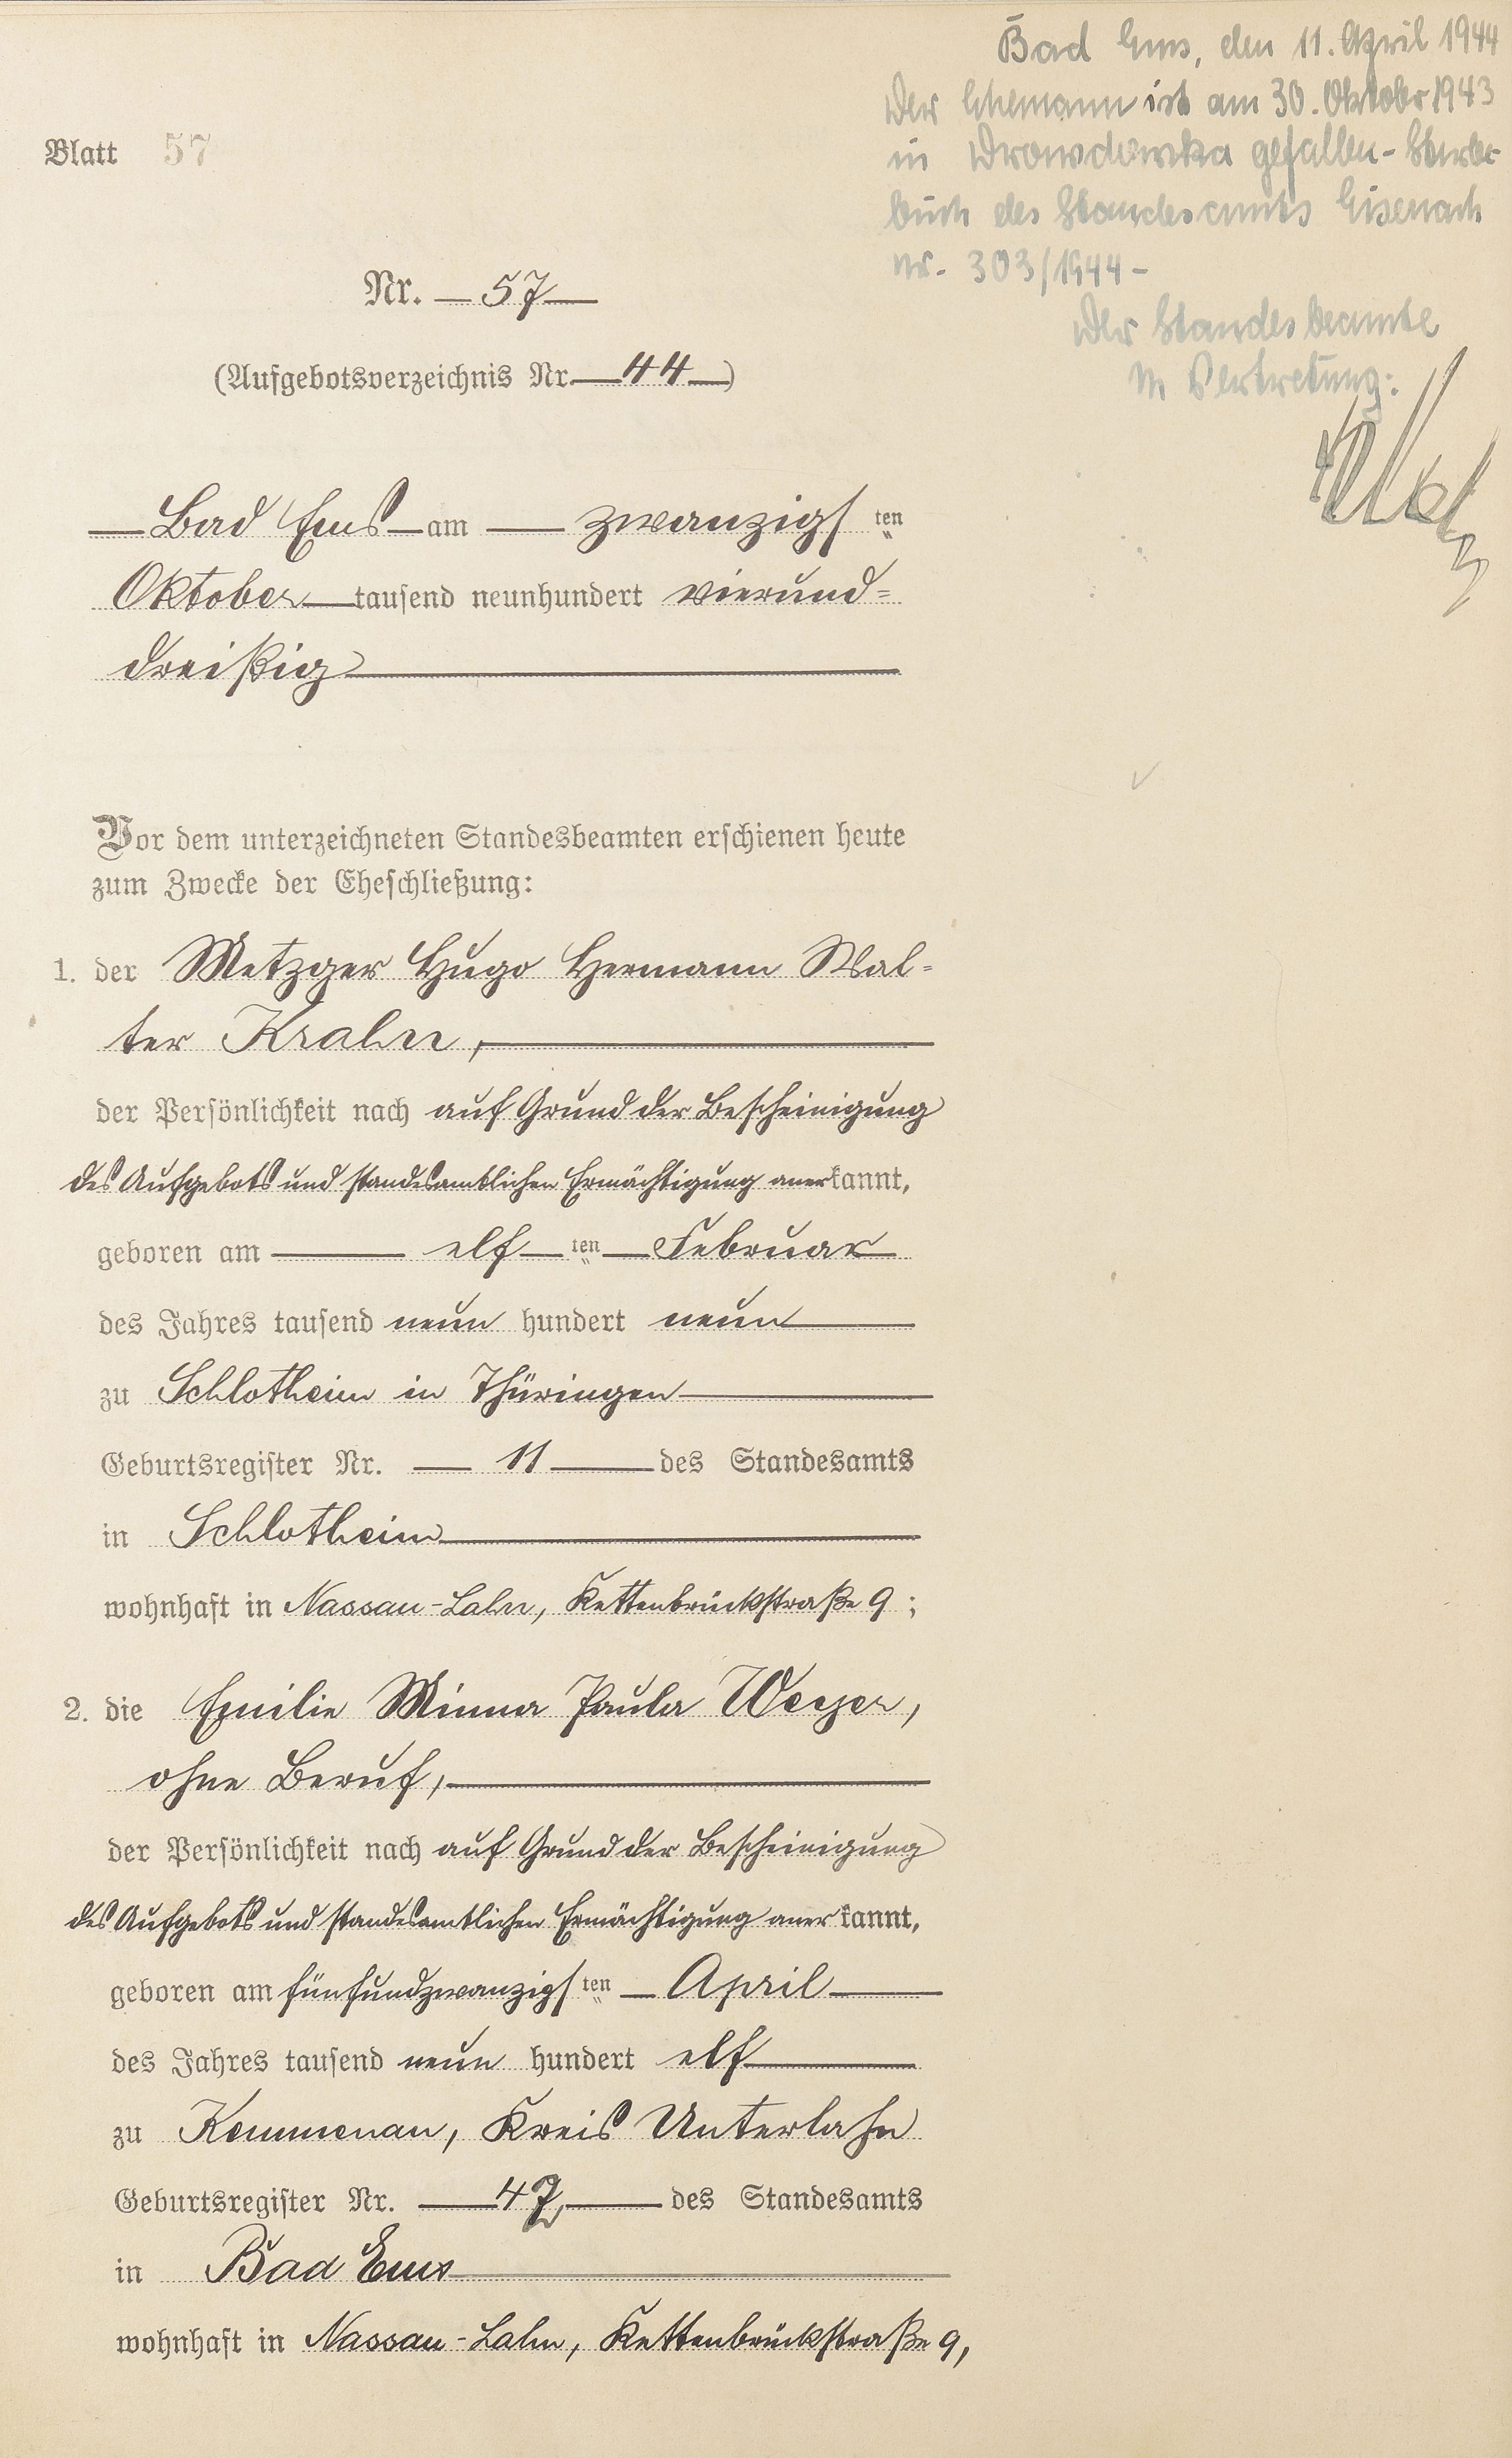 Bad Ems, den 11. April 1944
Der Ehemann ist am 30. Oktober 1943
in Drowdowka gefallen - Sterbe-
buch des Standesamts Eisenach
Nr. 303/1944 -
Der Standesbeamte
In Vertretung:
Blatt 57
Nr. 57
(Aufgebotsverzeichnis Nr. 44)
Bad Ems am zwanzigsten
Oktober tausend neunhundert vierund=
dreißig
Vor dem unterzeichneten Standesbeamten erschienen heute
zum Zwecke der Eheschließung:
1. der Metzger Hugo Hermann Wal=
ter Krahn,
der Persönlichkeit nach auf Grund der Bescheinigung
des Aufgebots und standesamtlichen Ermächtigung anerkannt,
geboren am elften Februar
des Jahres tausend neun hundert neun
zu Schlotheim in Thüringen
Geburtsregister Nr. 11 des Standesamts
in Schlotheim
wohnhaft in Nassau-Lahn, Kettenbrückstraße 9;
2. die Emilie Minna Paula
ohne Beruf,
der Persönlichkeit nach auf Grund der Bescheinigung
des Aufgebots und standesamtlichen Ermächtigung anerkannt,
geboren am fünfundzwanzigsten April
des Jahres tausend neun hundert elf
zu Kemmenau, Kreis Unterlahn
Geburtsregister Nr. 47, des Standesamts
in Bad Ems
wohnhaft in Nassau-Lahn, Kettenbrückstraße 9,